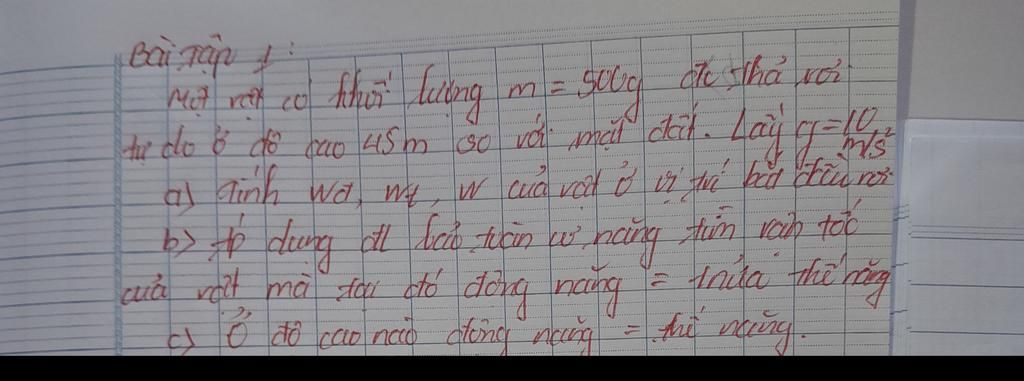 Bài tập 1:
Một vật có khối lượng m = 500g đc thả rơi
tự do ở độ cao 45m so với mặt đất. Lấy g=10 m/s²
a) Tính Wđ, Wt, W của vật ở vị trí bắt đầu rơi
b) Áp dụng đl bảo toàn cơ năng tìm vận tốc
của vật mà tại đó động năng = thế năng
c) Ở độ cao nào động năng = thế năng.